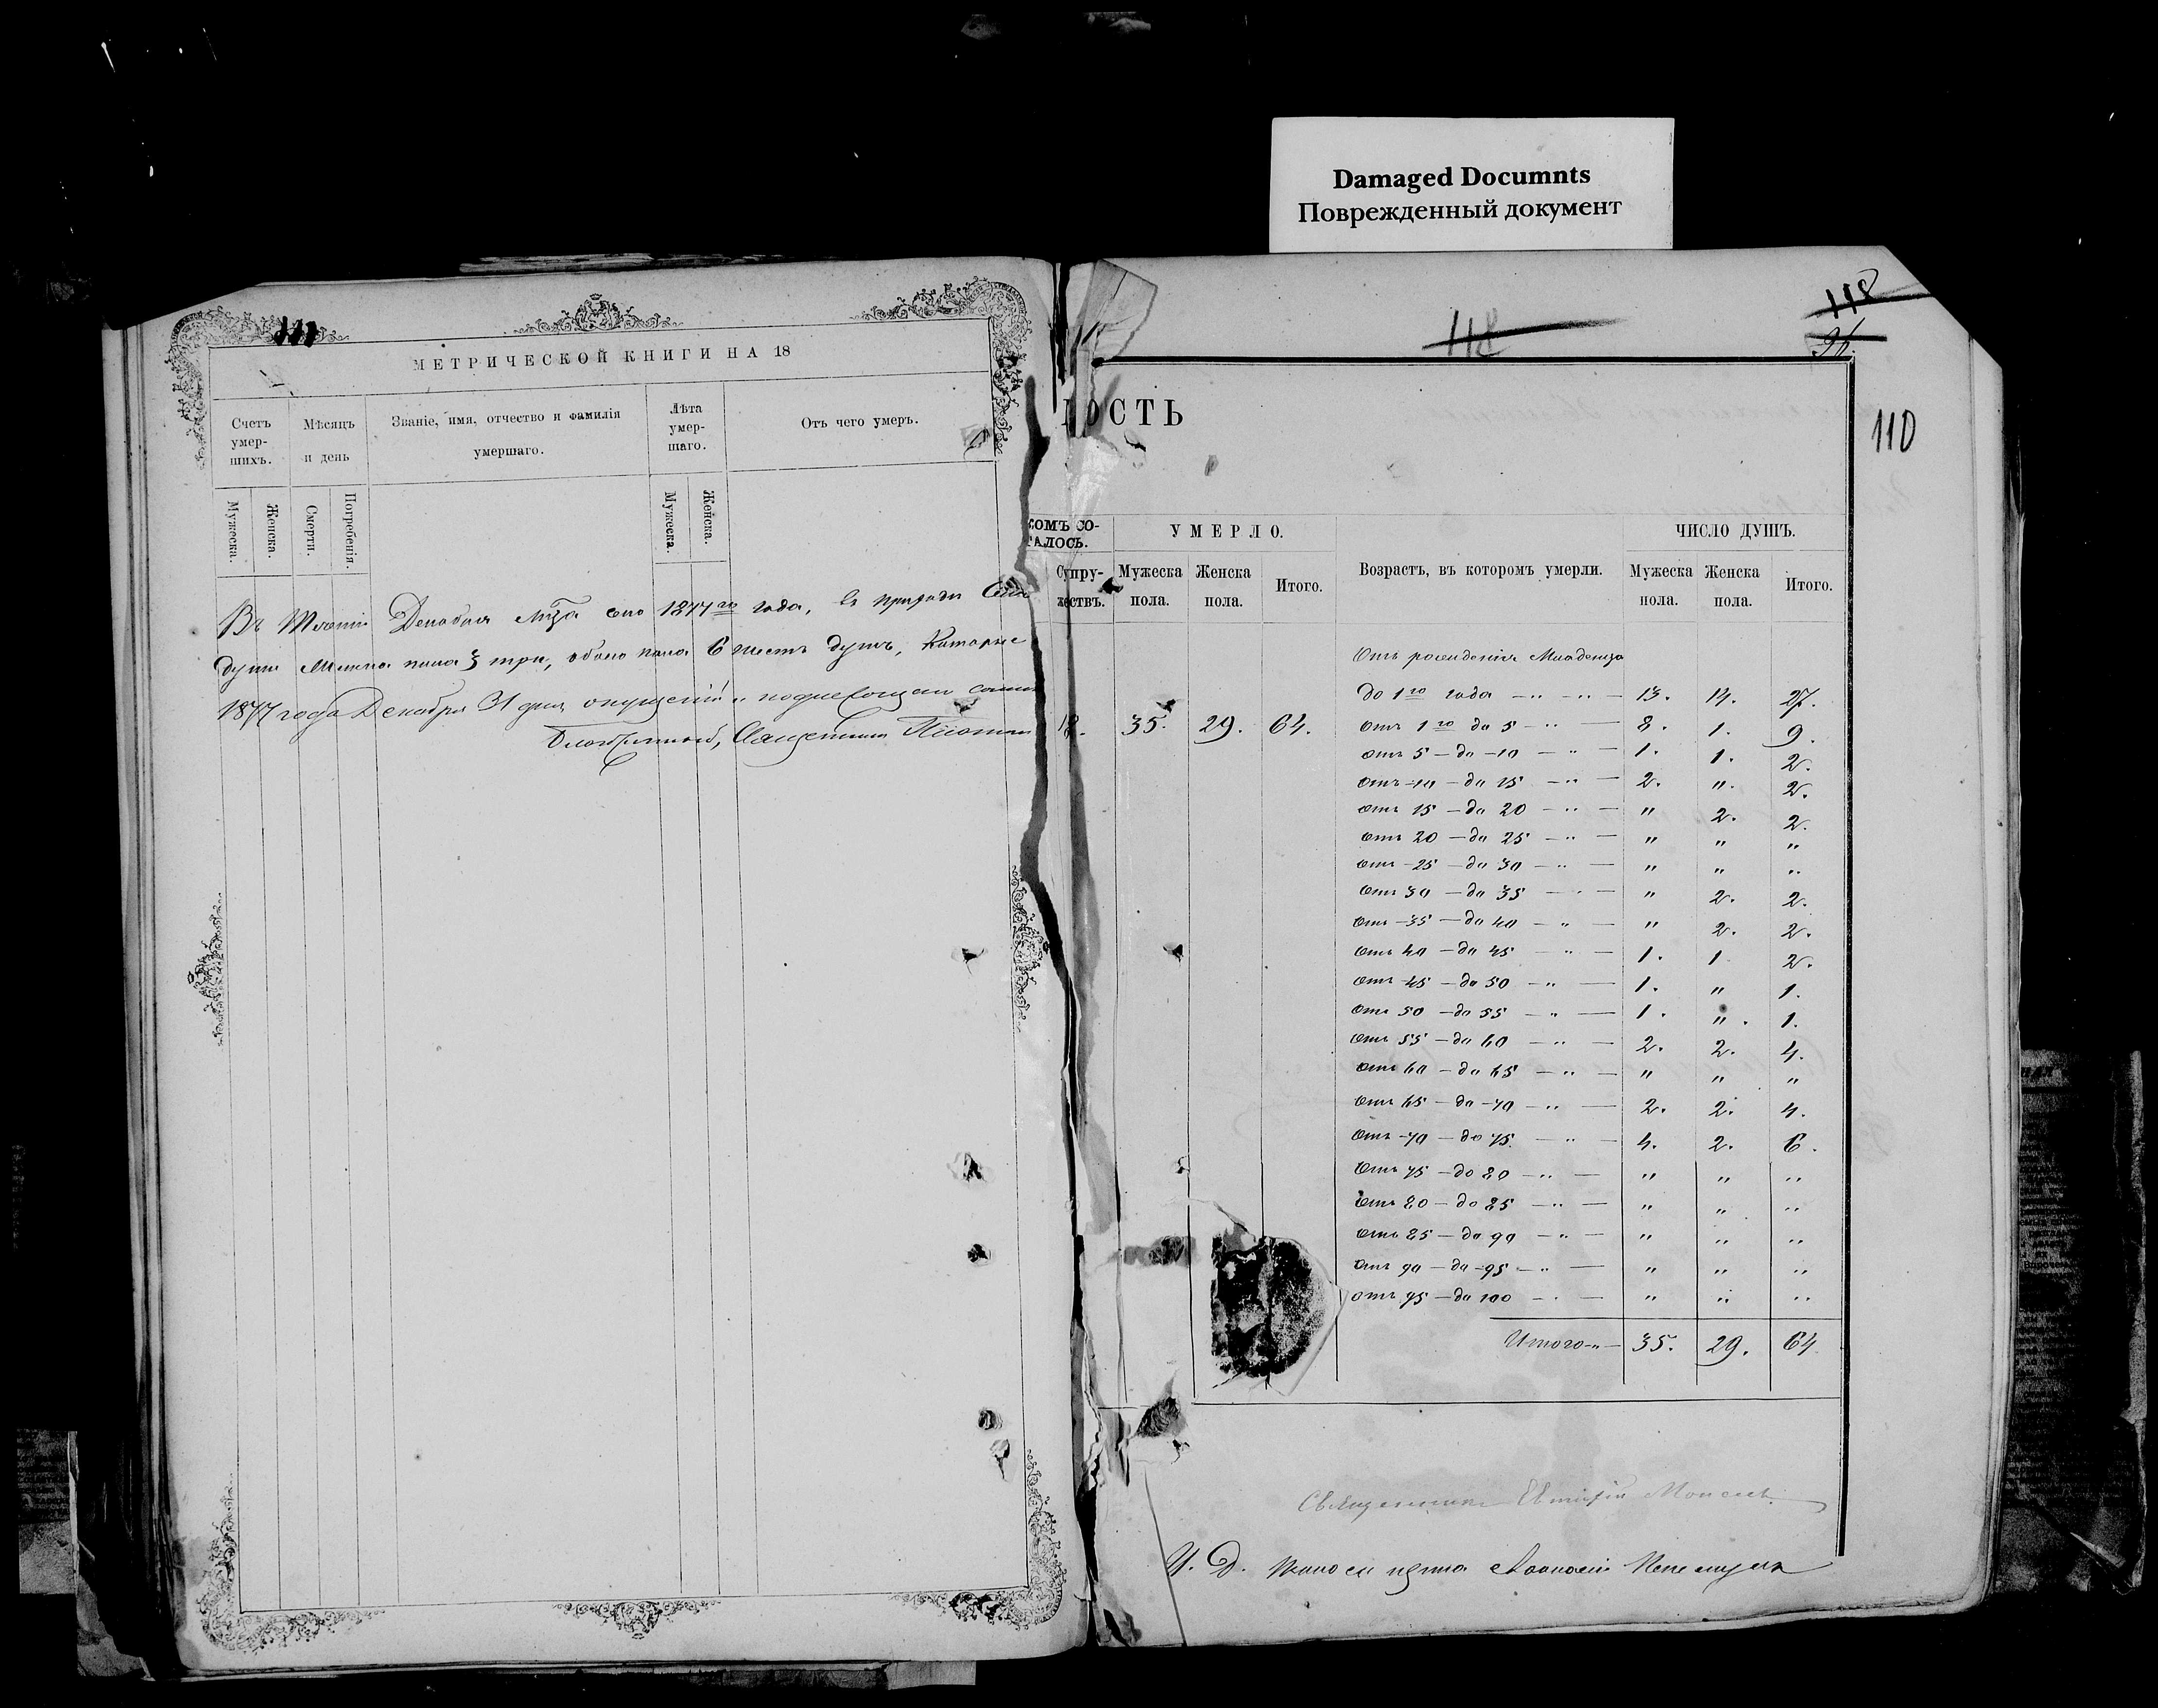 Damaged Documnts
Поврежденный документ
МЕТРИЧЕСКОЙ КНИГИ НА 18
Счетъ умер-шихъ.
Мѣсяцъ и день
Званіе, имя, отчество и фамилія умершаго.
Лѣта умер-шаго.
Отъ чего умеръ.
Мужеска.
Женска.
Смерти.
Погребенія.
Мужеска.
Женска.
Въ Декабря сего 1877го года,
души пола 3 три, обоего пола 6 шесть душъ, Которые
1877 года Декабря 31 дня
Священникъ
118
118
96.
110
ОСТЬ
КОМЪ СО-
ТАЛОСЬ.
УМЕРЛО.
ЧИСЛО ДУШЪ.
Супру-жествъ.
Мужеска пола.
Женска пола.
Итого.
Возрастъ, въ которомъ умерли.
Мужеска пола.
Женска пола.
Итого.
18. 35. 29. 64.
Отъ рожденія Младенца
до 1го года — „ — „ — 13. 14. 27.
Отъ 1го до 5 — „ — 8. 1. 9.
отъ 5 — до — 10 — „ — 1. 1. 2.
отъ 10 — до 15 — „ — 2. „. 2.
отъ 15 — до 20 — „ — „ 2. 2.
отъ 20 — до 25 — „ — „ „ „
отъ 25 — до 30 — „ — „ „ „
отъ 30 — до 35 — „ — „ 2. 2.
отъ 35 — до 40 — „ — „ 2. 2.
отъ 40 — до 45 — „ — 1. 1 2.
отъ 45 — до 50 — „ — 1. „ 1.
отъ 50 — до 55 — „ — 1. „. 1.
отъ 55 — до 60 — „ — 2. 2. 4.
отъ 60 — до 65 — „ — „ „ „
отъ 65 — до 70 — „ — 2. 2. 4.
отъ 70 — до 75 — „ — 4. 2. 6.
отъ 75 — до 80 — „ — „ „ „
отъ 80 — до 85 — „ — „ „ „
отъ 85 — до 90 — „ — „ „ „
отъ 90 — до 95 — „ — „ „ „
отъ 95 — до 100 — „ — „ „ „
Итого — „ — 35. 29. 64
Священникъ
И. Д.